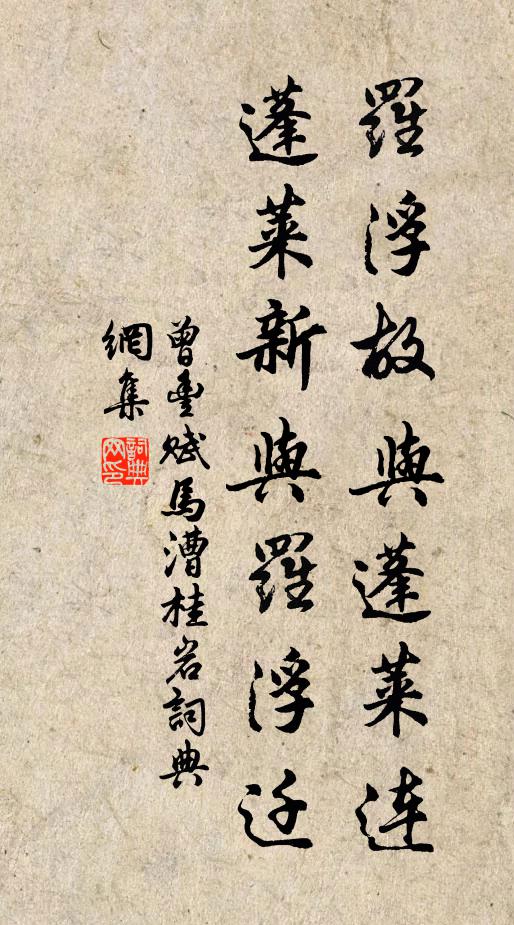 羅浮故與蓬萊連
蓬萊新與羅浮迁
曾豐賦馬漕桂岩詞典
網集
詞典
网印